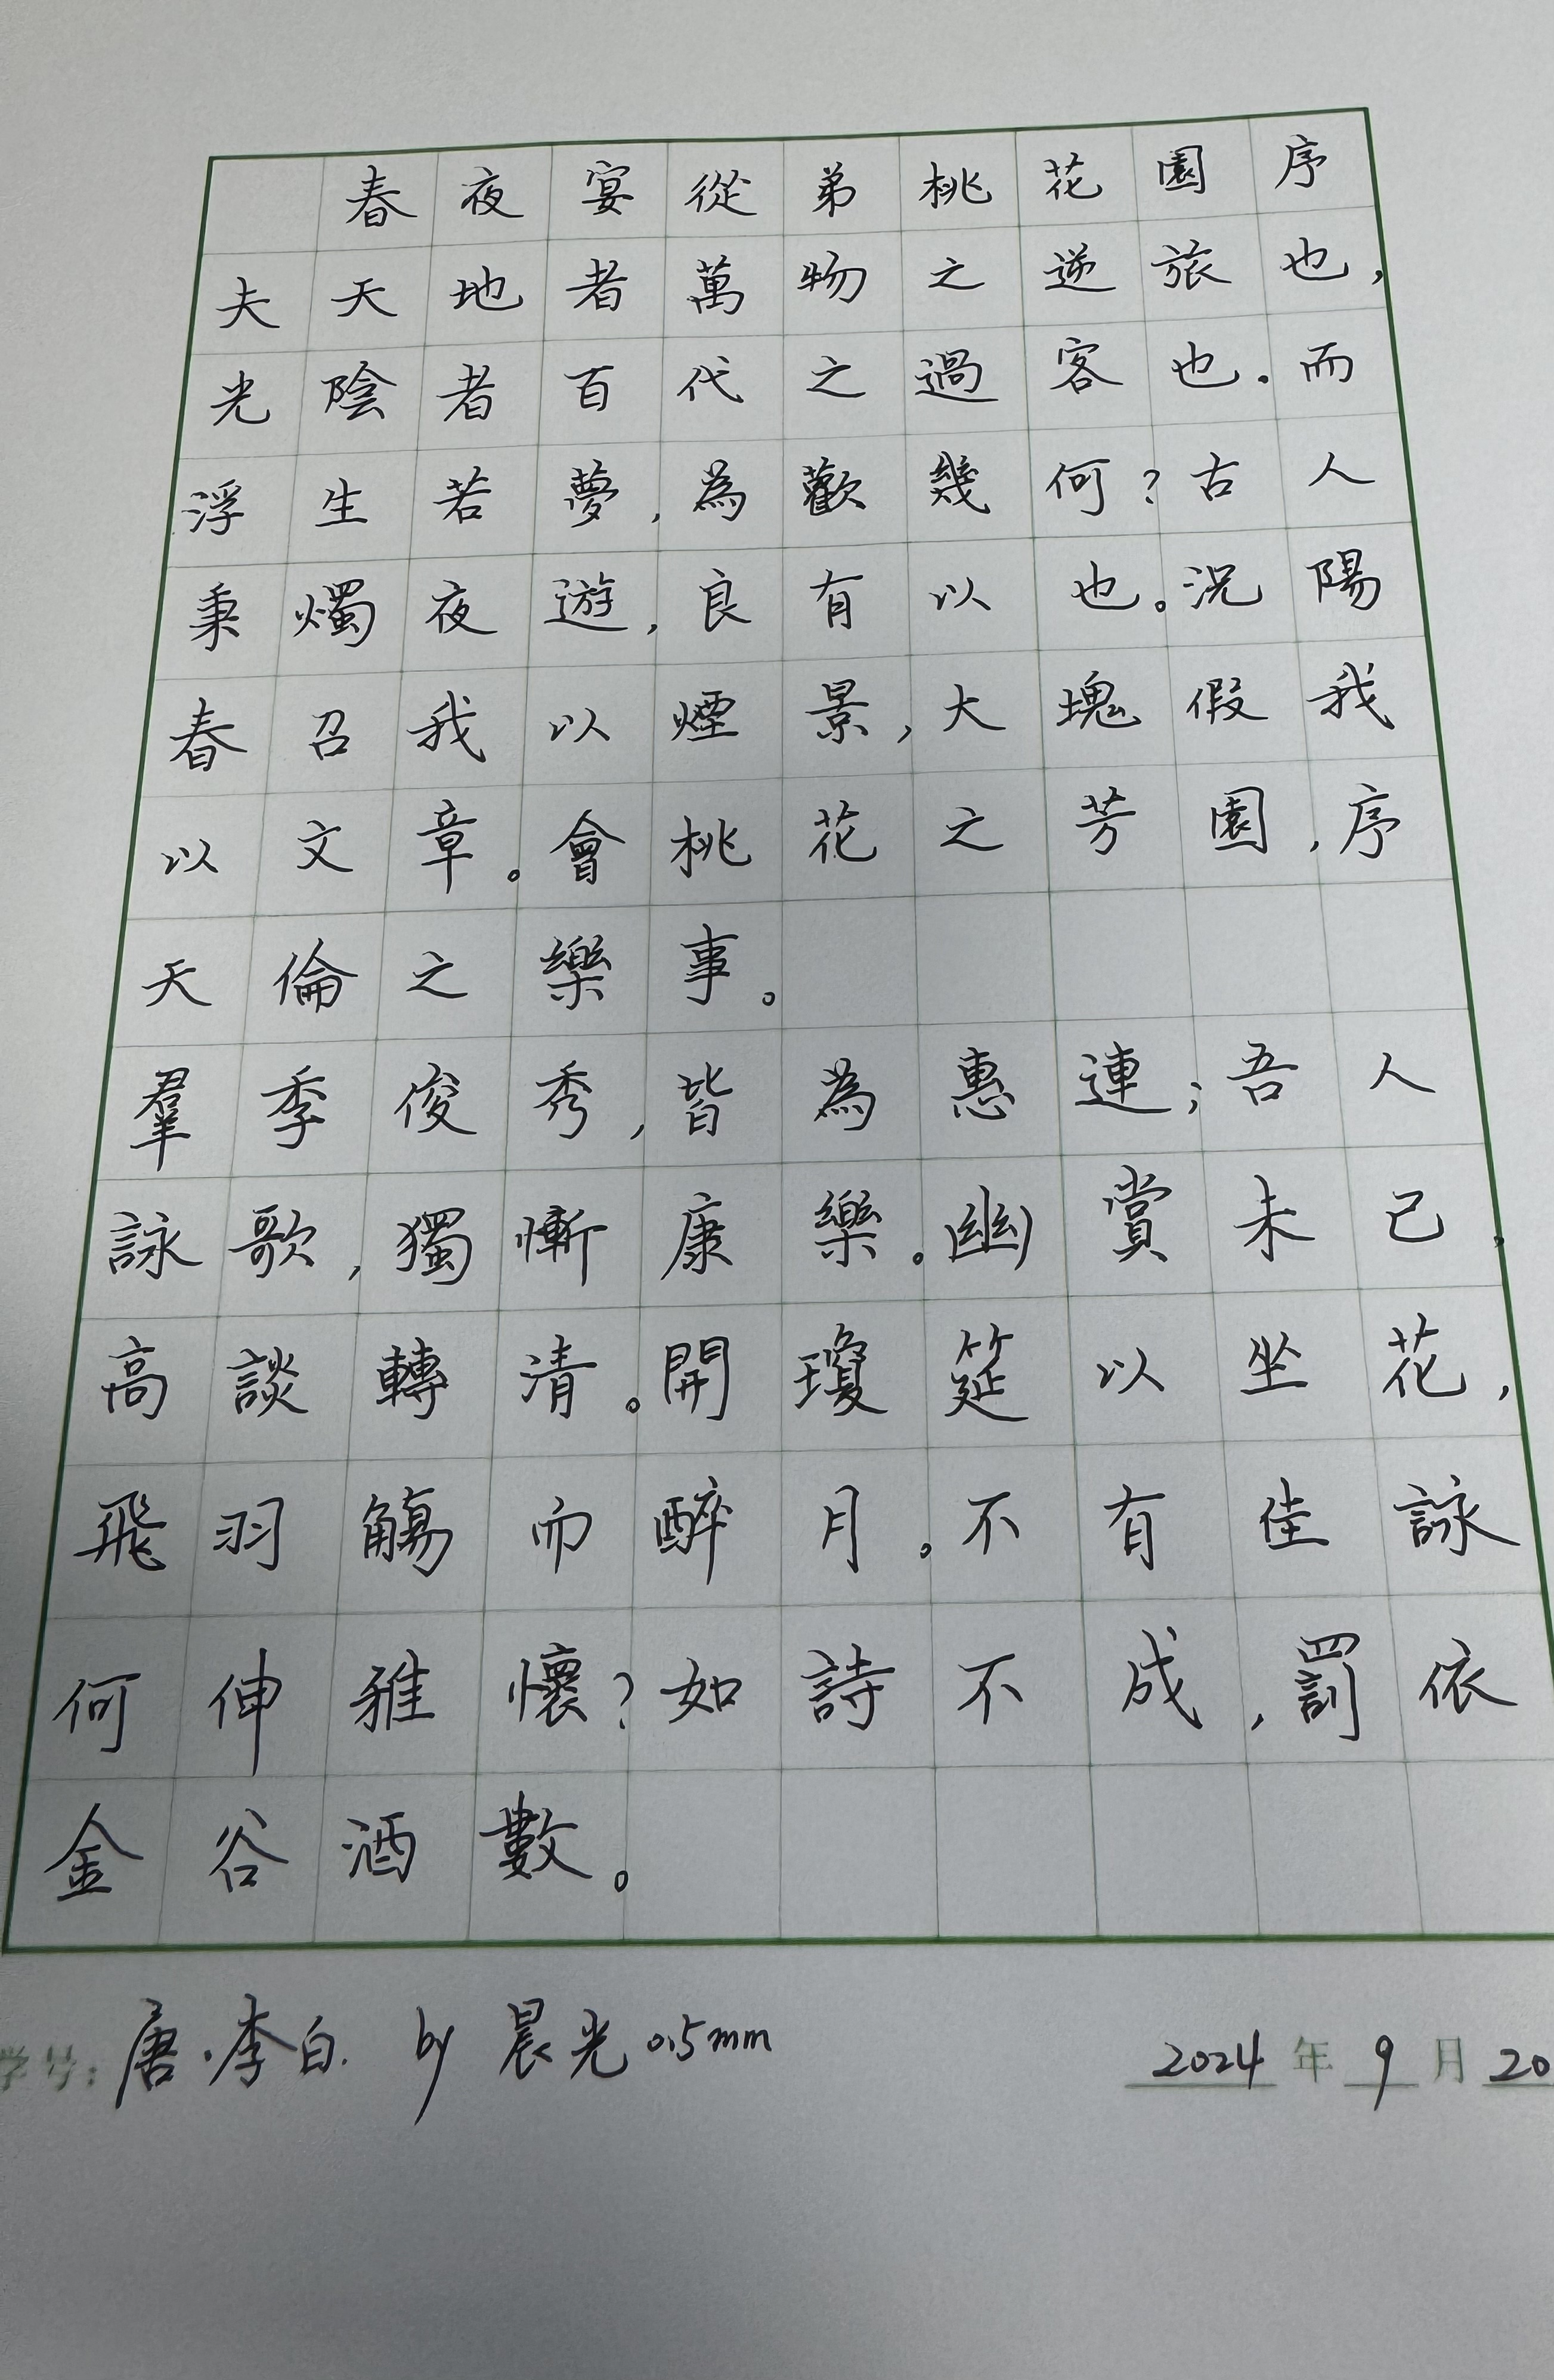 春夜宴從弟桃花園序
夫天地者萬物之逆旅也，
光陰者百代之過客也．而
浮生若夢，為歡幾何？古人
秉燭夜遊，良有以也。況陽
春召我以煙景，大塊假我
以文章。會桃花之芳園，序
天倫之樂事。
羣季俊秀，皆為惠連；吾人
詠歌，獨慚康樂。幽賞未已，
高談轉清。開瓊筵以坐花，
飛羽觴而醉月。不有佳詠
何伸雅懷？如詩不成，罰依
金谷酒數。
学号：唐·李白. by 晨光 0.5mm 2024 年 9 月 20